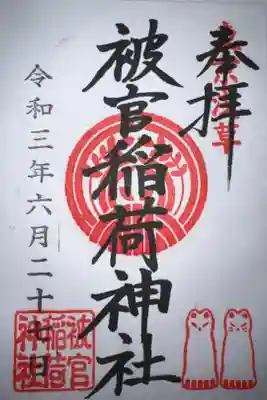 奉拝
東京浅草
被官稲荷神社
令和三年六月二十七日
被官
稲荷
神社